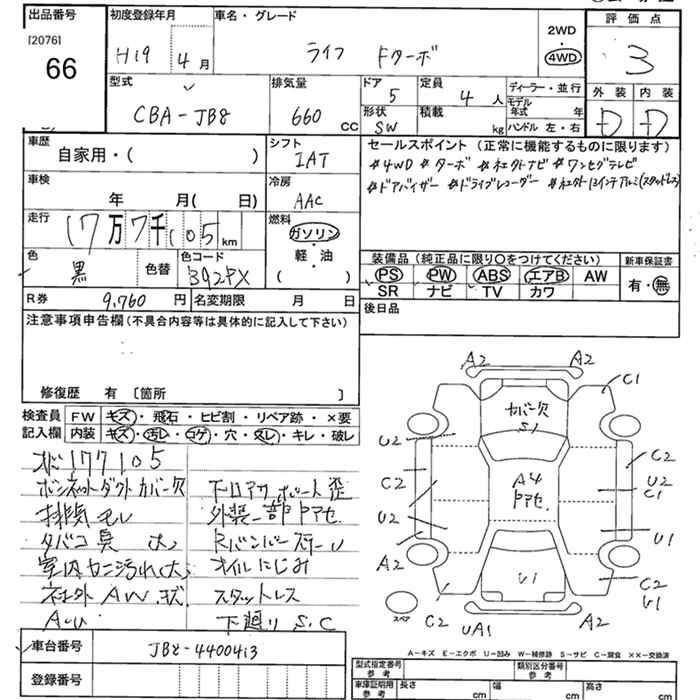 出品番号
[2076]
66
初度登録年月
H19 4月
車名・グレード
ライフ Fターボ
2WD
4WD
評価点
3
型式
CBA-JB8
排気量
660 CC
ドア
5
定員
4人
形状
SW
積載
kg
ディーラー・並行
モデル年式 年
ハンドル 左・右
外装 内装
D D
車歴
自家用・( )
シフト
IAT
車検
年 月( 日)
冷房
AAC
走行
17万7千105km
燃料
ガソリン
・軽・油
( )
色
黒
色替
色コード
B92PX
R券
9,760円
名変期限
月 日
セールスポイント(正常に機能するものに限ります)
#4WD #ターボ #社外ナビ #ワンセグテレビ
#ドアバイザー #ドライブレコーダー #社外13インチアルミ(スタッドレス)
装備品(純正品に限り○をつけてください)
PS PW ABS エアB AW
SR ナビ TV カワ
新車保証書
有・無
後日品
注意事項申告欄(不具合内容等は具体的に記入して下さい)
修復歴 有 〔箇所 〕
検査員記入欄
FW キズ・飛石・ヒビ割・リペア跡・×要
内装 キズ・汚レ・コゲ・穴・スレ・キレ・破レ
177105
ボンネットダクトカバー欠
排気モレ
タバコ臭 大
室内カニ汚れ大
社外AW.状
下回りS.C
外装一部Pアセ
オイルにじみ
スタットレス
A2 A2
C1
カバー欠
S1
U2
C2
C2
U2
C1
A4
Pアセ
U2
U1
A2
U1
C2
U1
スペア
C2
UA1
A2
A-キズ E-エクボ U-凹み W-補修跡 S-サビ C-腐食 ××-交換済
車台番号
JB8-4400413
登録番号
型式指定番号
参考
類別区分番号
参考
車庫証明用
参考
長さ cm
幅 cm
高さ cm